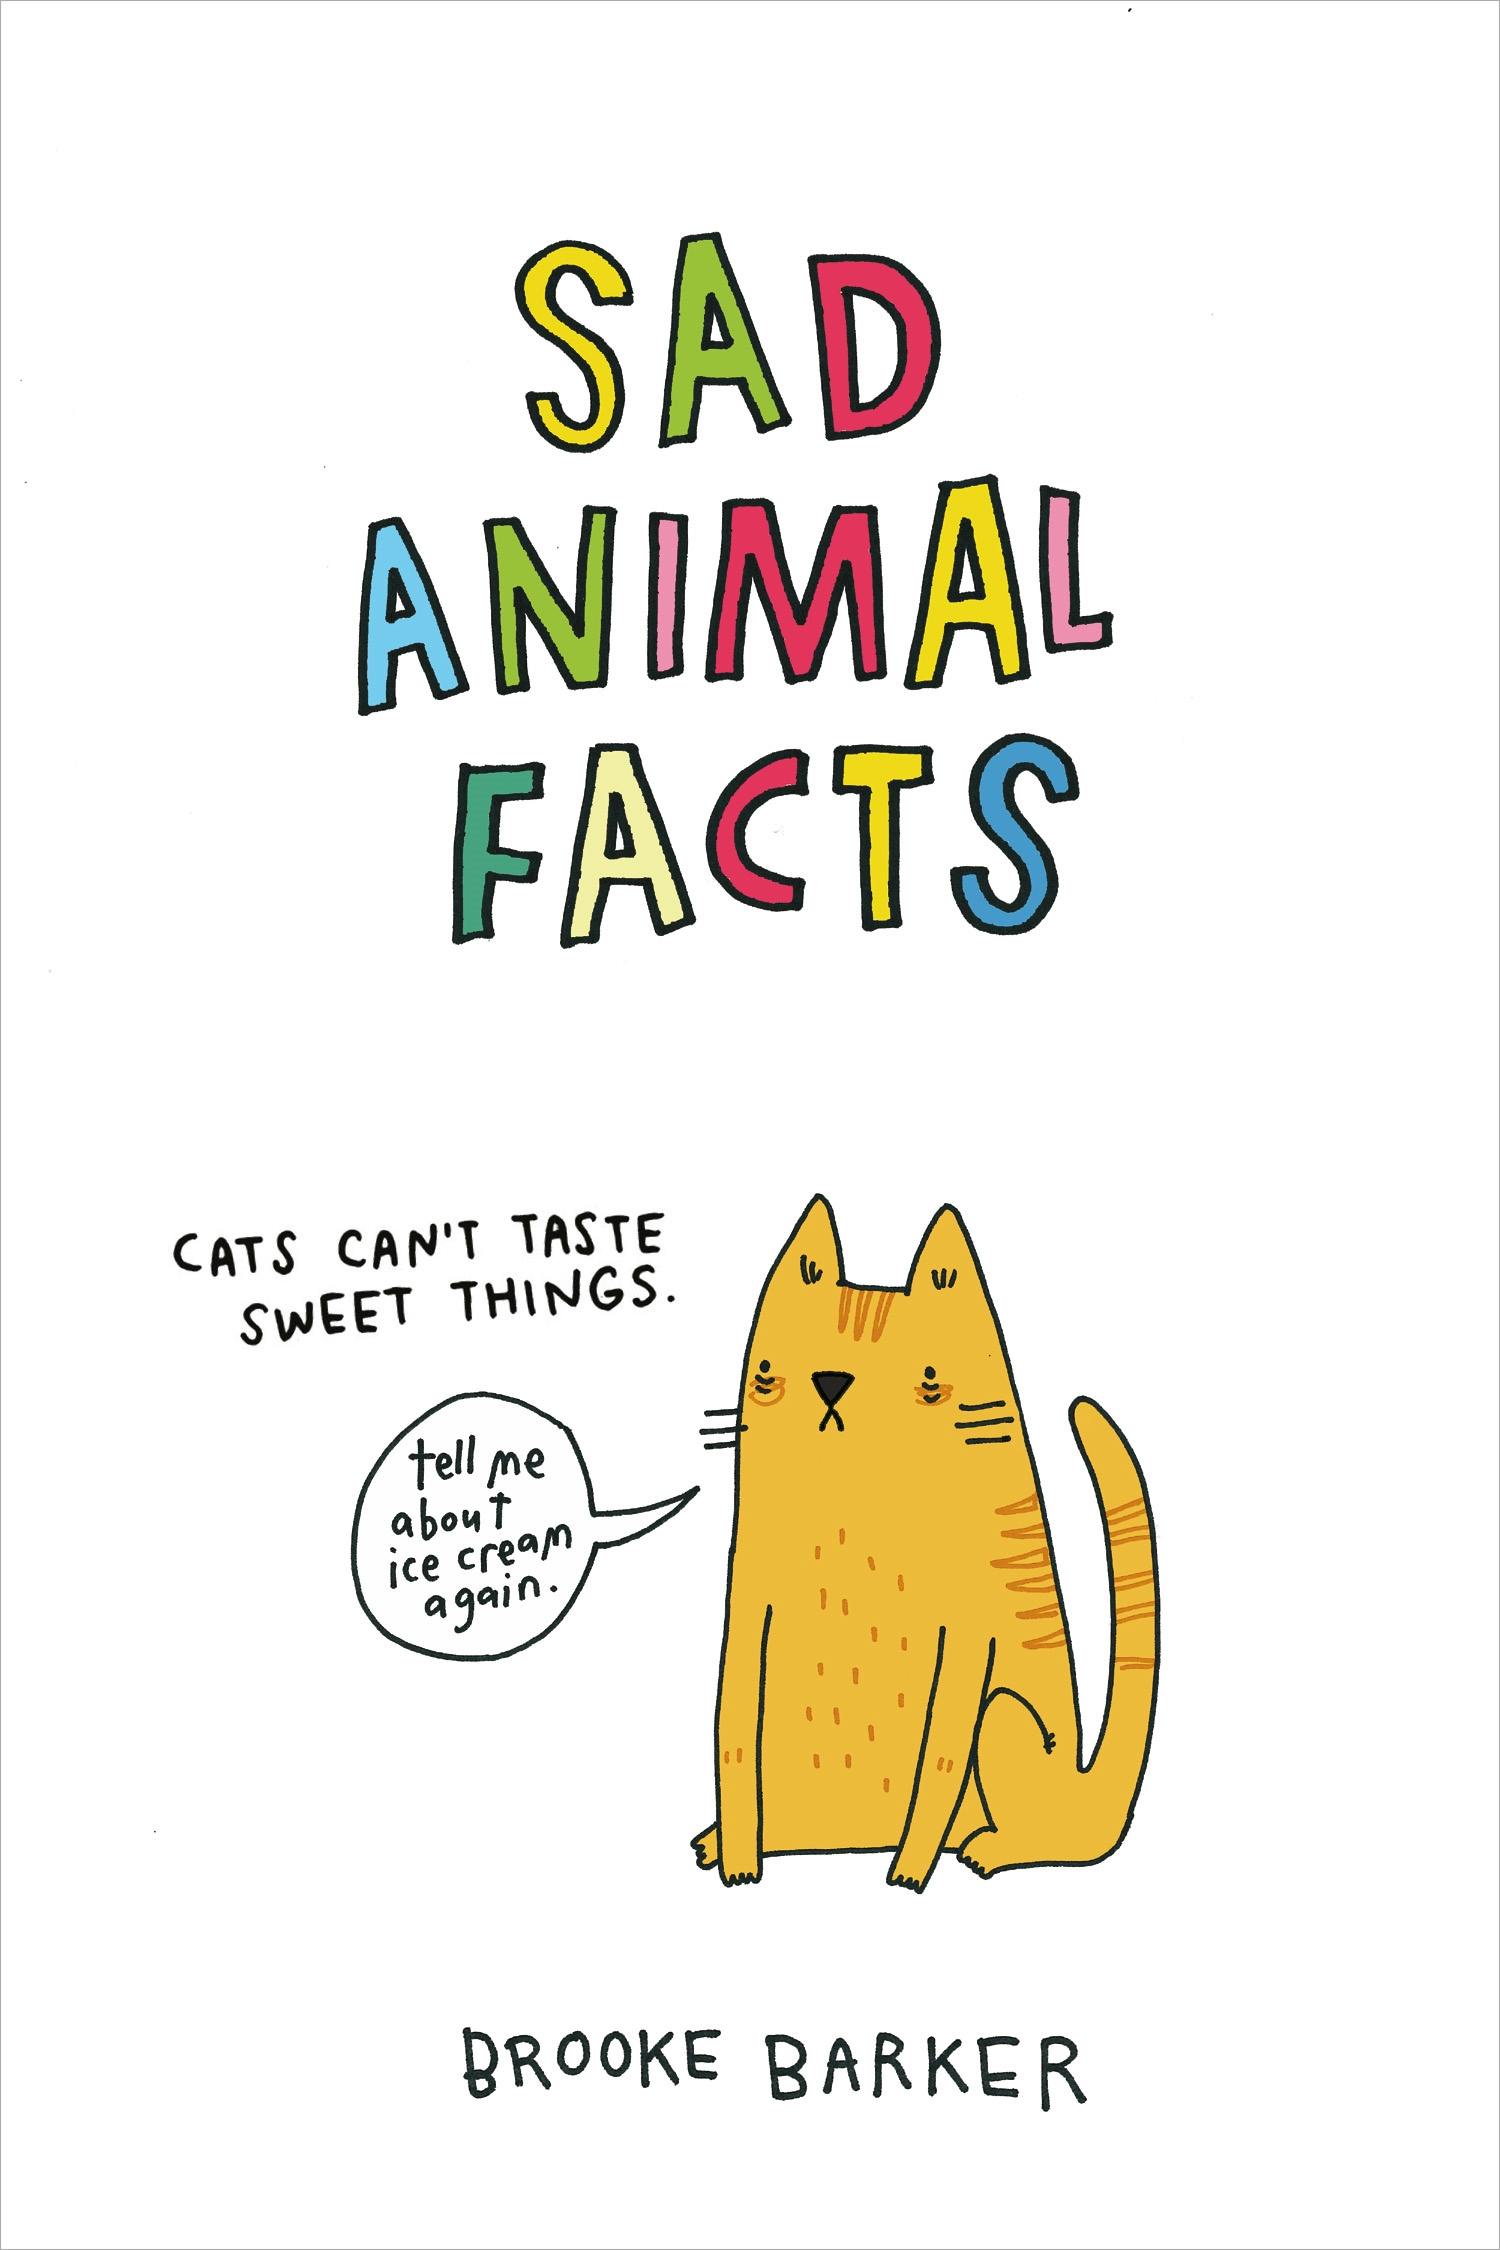 SAD
ANIMAL
FACTS
CATS CAN'T TASTE
SWEET THINGS.
tell me
about
ice cream
again.
BROOKE BARKER